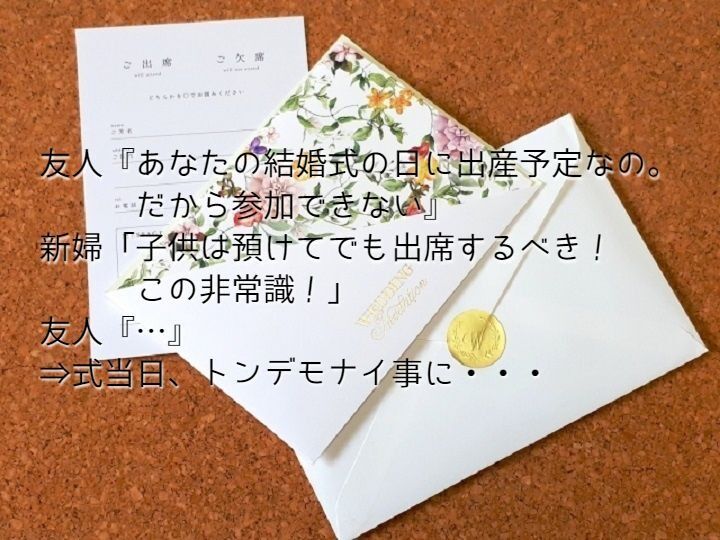 ご出席
will attend
ご欠席
will not attend
どちらかを○でお囲みください
ご芳名
友人『あなたの結婚式の日に出産予定なの。
だから参加できない』
新婦「子供は預けてでも出席するべき!
この非常識!」
友人『…』
⇒式当日、トンデモナイ事に・・・
WEDDING
Invitation